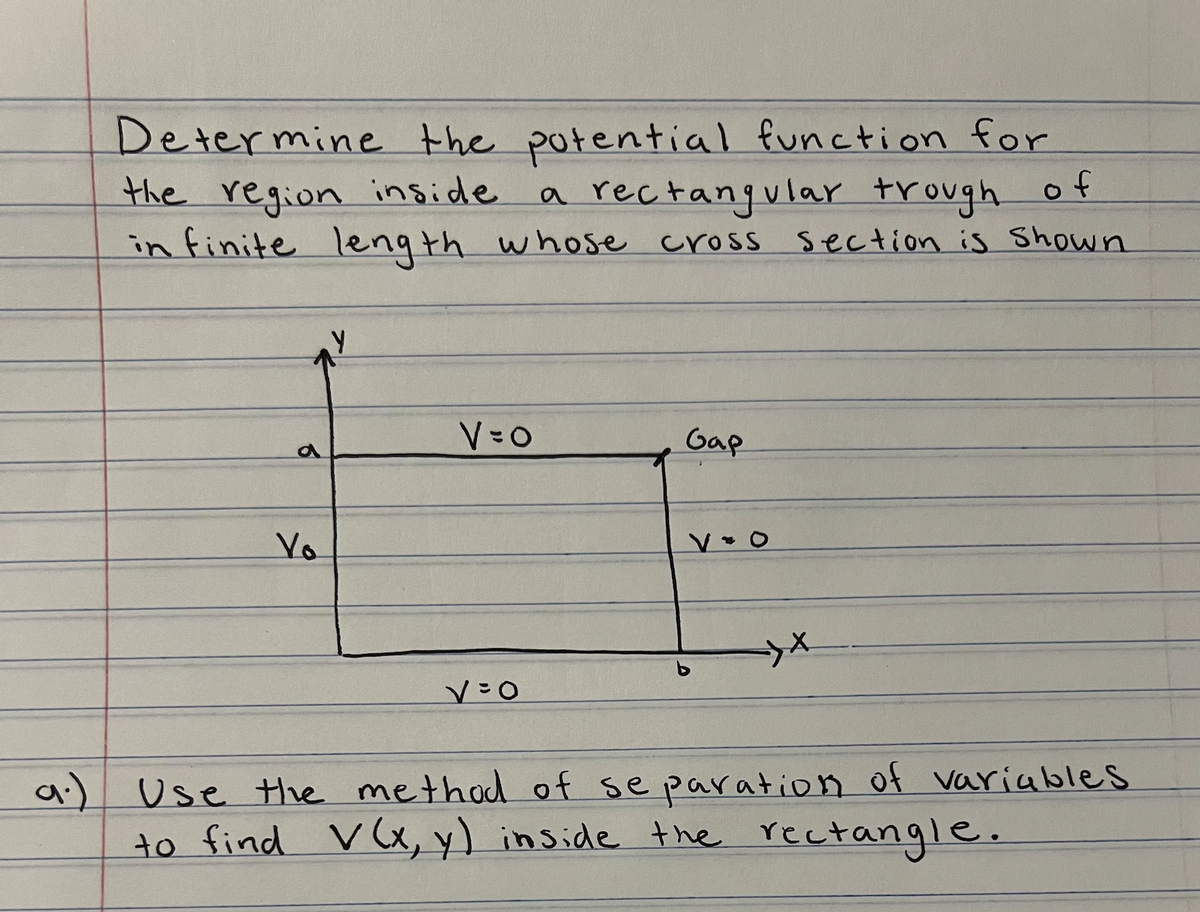 Determine the potential function for
the region inside a rectangular trough of
infinite length whose cross section is shown
y
V=0
Gap
a
Vo
V=0
x
b
V=0
a.) Use the method of separation of variables
to find V(x,y) inside the rectangle.